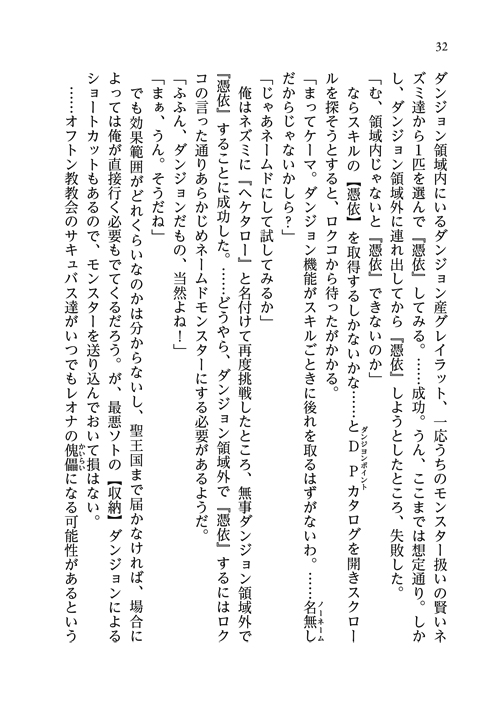 32
ダンジョン領域内にいるダンジョン産グレイラット、一応うちのモンスター扱いの賢いネ
ズミ達から1匹を選んで『憑依』してみる。……成功。うん、ここまでは想定通り。しか
し、ダンジョン領域外に連れ出してから『憑依』しようとしたところ、失敗した。
「む、領域内じゃないと『憑依』できないのか」
ならスキルの【憑依】を取得するしかないかな……とDPカタログを開きスクロー
ダンジョンポイント
ルを探そうとすると、ロクコから待ったがかかる。
「まってケーマ。ダンジョン機能がスキルごときに後れを取るはずがないわ。……名無し
ノーネーム
だからじゃないかしら?」
「じゃあネームドにして試してみるか」
俺はネズミに『ヘケタロー』と名付けて再度挑戦したところ、無事ダンジョン領域外で
『憑依』することに成功した。……どうやら、ダンジョン領域外で『憑依』するにはロク
コの言った通りあらかじめネームドモンスターにする必要があるようだ。
「ふふん、ダンジョンだもの、当然よね!」
「まぁ、うん。そうだね」
でも効果範囲がどれくらいなのかは分からないし、聖王国まで届かなければ、場合に
よっては俺が直接行く必要もでてくるだろう。が、最悪ソトの【収納】ダンジョンによる
ショートカットもあるので、モンスターを送り込んでおいて損はない。
……オフトン教教会のサキュバス達がいつでもレオナの傀儡になる可能性があるという
かいらい